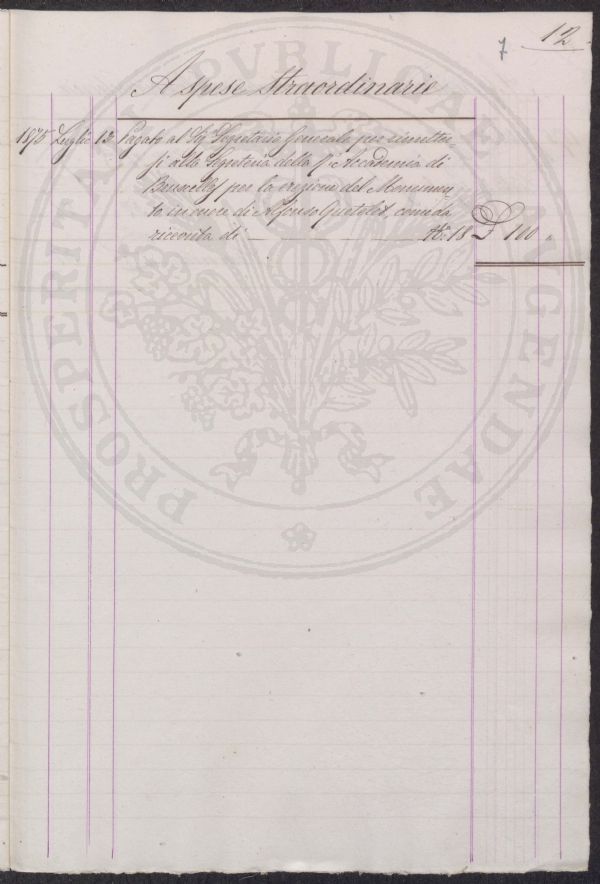 12
7
A spese Straordinarie
1875 Luglio 12 Pagato al Sig Segretario Generale per rimetter-
si alla Segreteria della R. Accademia di
Bruxelles per la erezione del Monumen-
to in onore di Alfonso Quetelet, come da
ricevuta di N.º 18 £ 100 "
PROSPERITATI PUBLICAE AUGENDAE